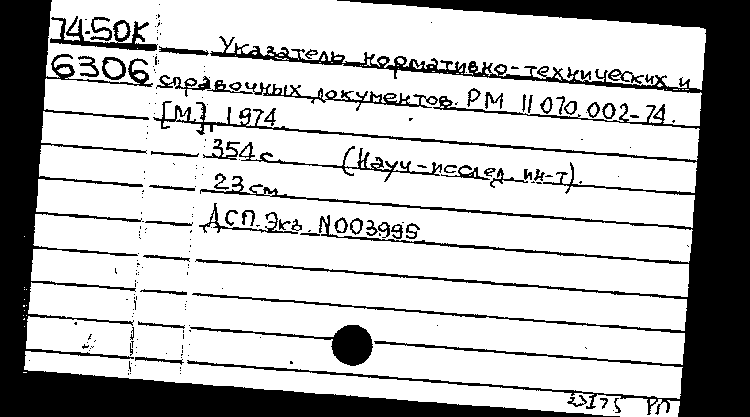 74-50К
6306
Указатель нормативно-технических и
справочных документов. РМ 11 070.002-74.
[М.], 1974.
354 с. (Науч-исслед. ин-т).
23 см.
ДСП. Экз. N003995
РП